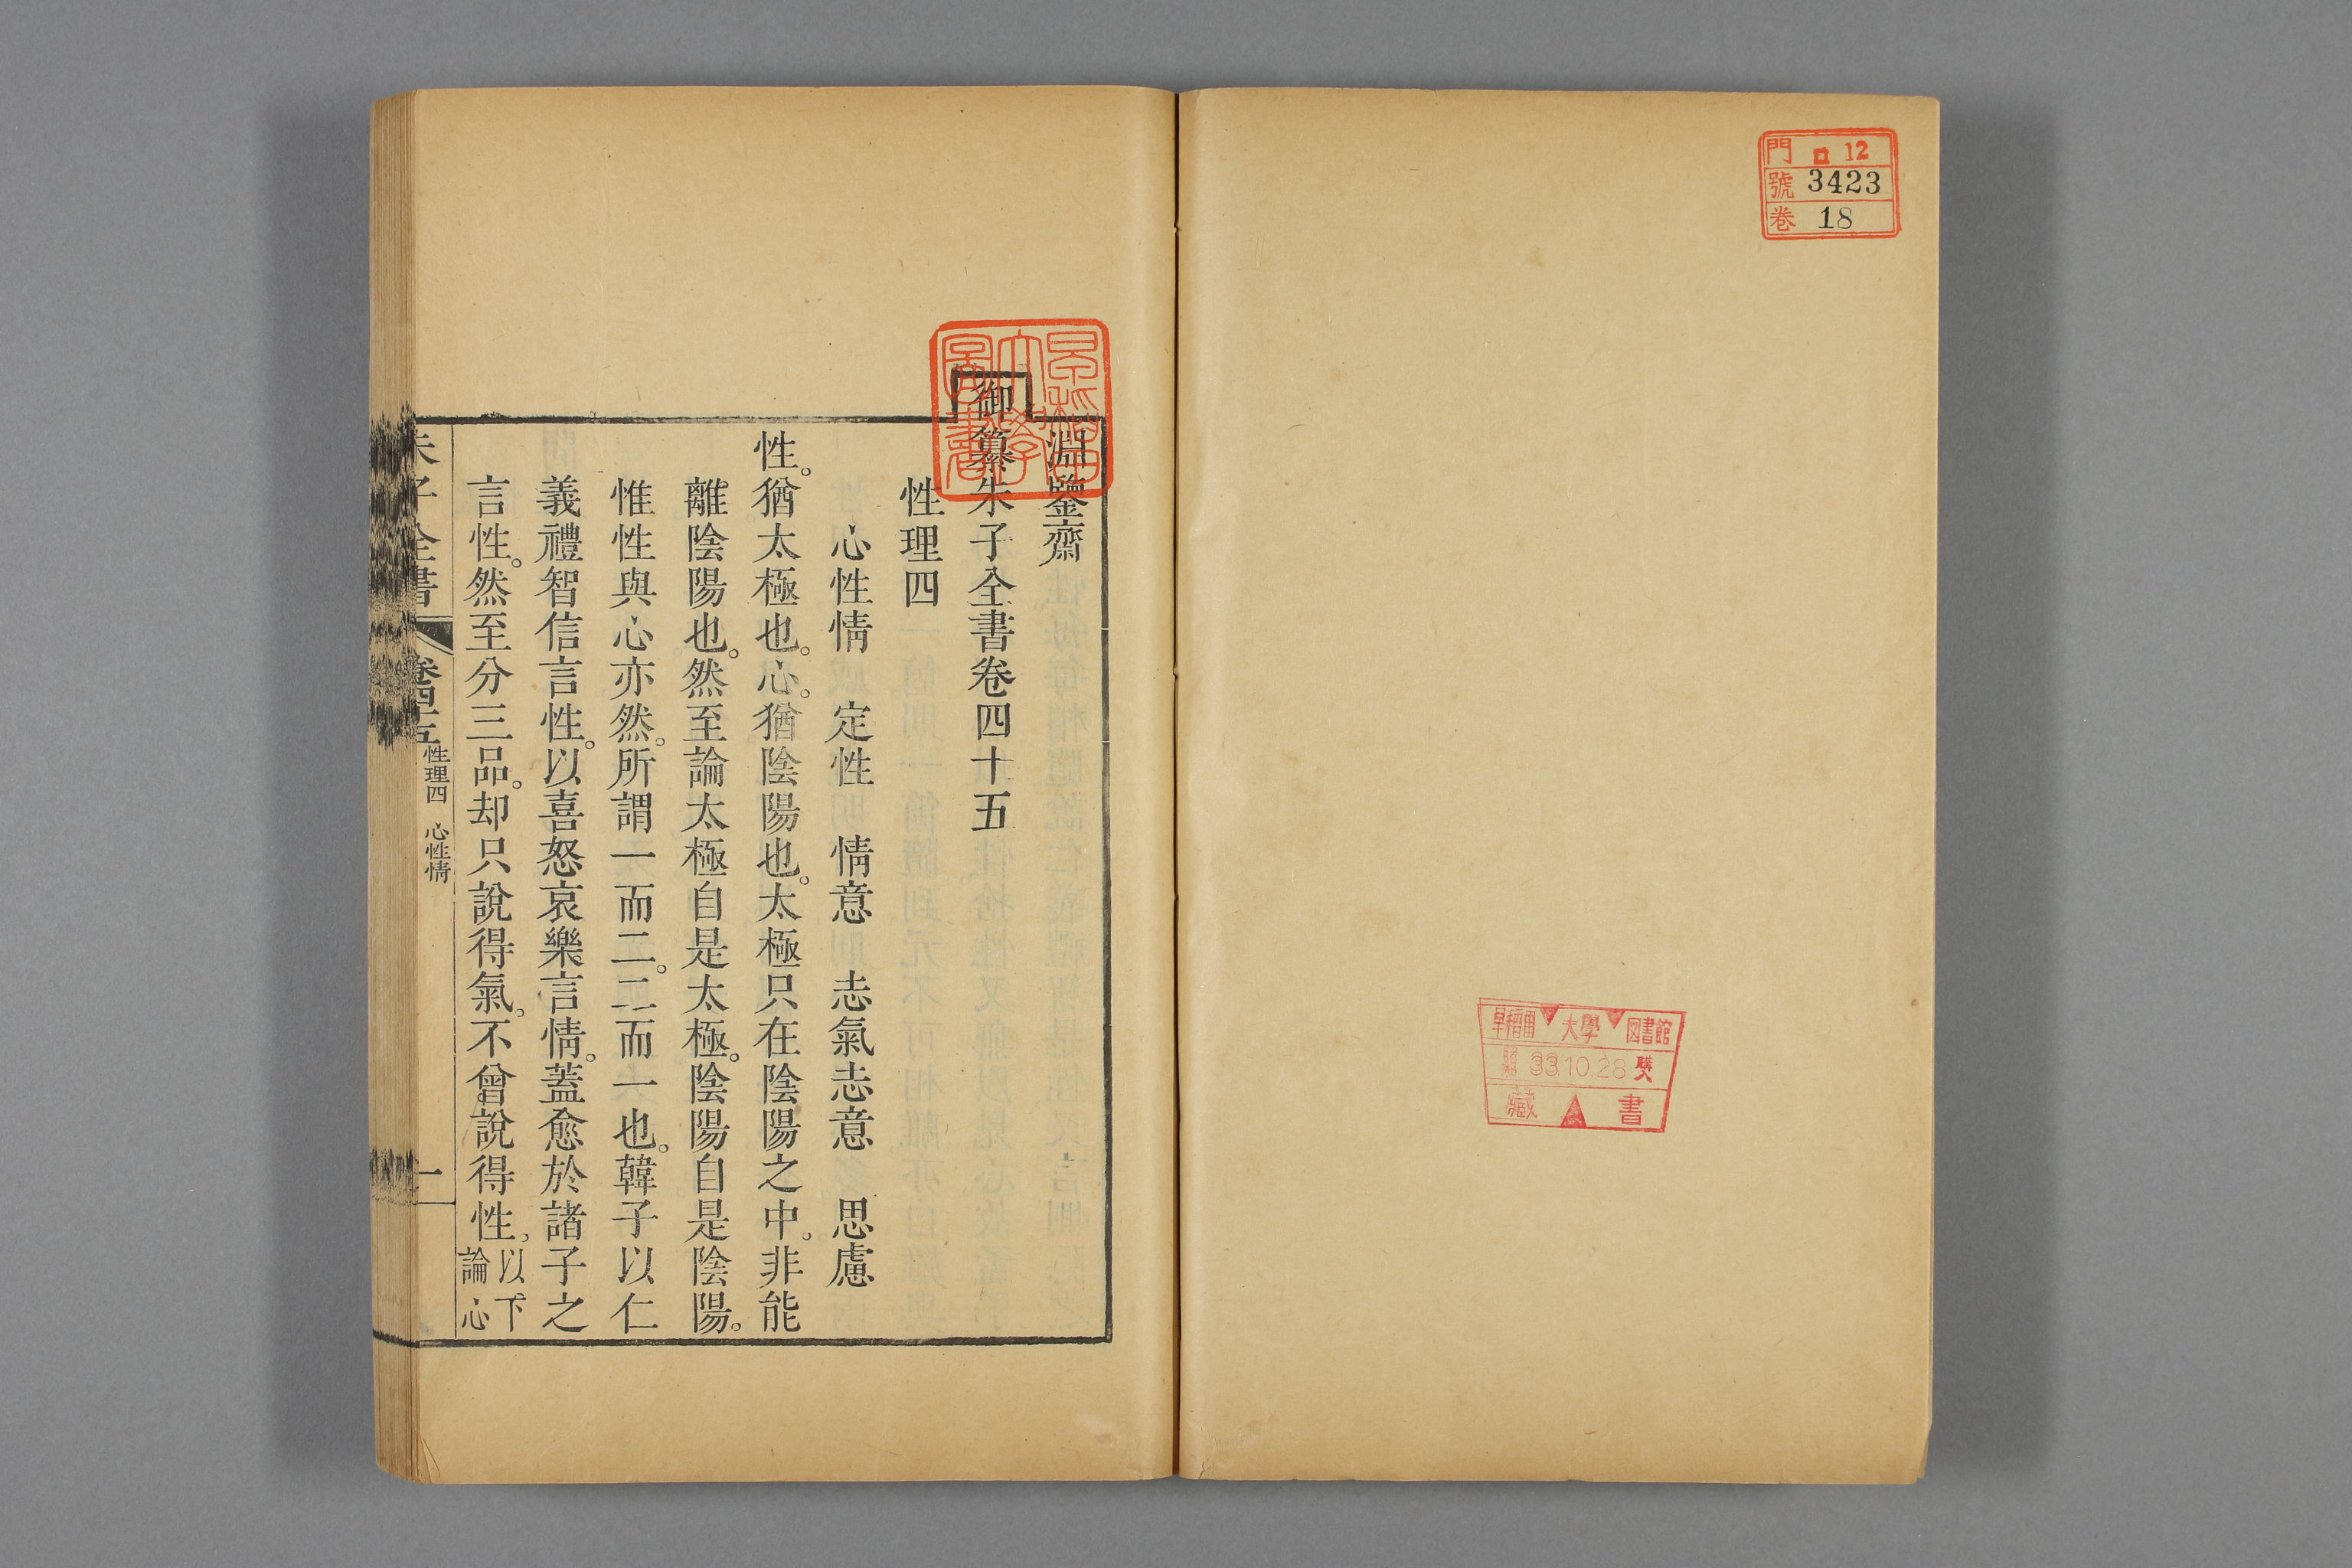 門 ロ 12
號 3423
巻 18
早稲田大學図書館
33.10.28 購
藏書
淵鑒齋
御纂朱子全書卷四十五
性理四
心性情 定性 情意 志氣志意 思慮
性。猶太極也。心。猶陰陽也。太極只在陰陽之中。非能
離陰陽也。然至論太極自是太極。陰陽自是陰陽。
惟性與心亦然。所謂一而二。二而一也。韓子以仁
義禮智信言性。以喜怒哀樂言情。蓋愈於諸子之
言性。然至分三品。却只說得氣。不曾說得性。以下論心
朱子全書 卷四十五 性理四 心性情 一
早稲田大學圖書